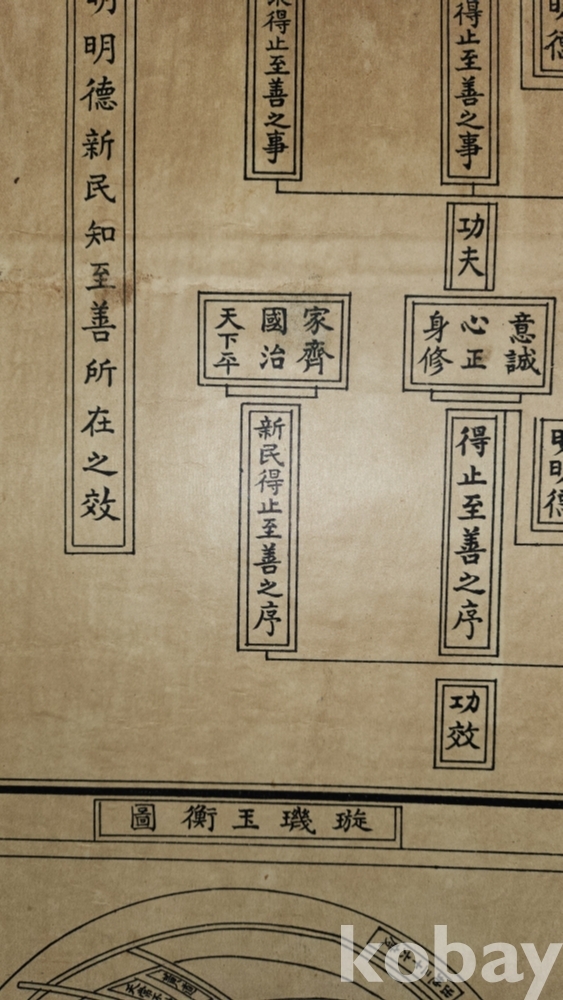 明德
得止至善之事
得止至善之事
明明德新民知至善所在之效
功夫
意誠
心正
身修
家齊
國治
天下平
明明德
得止至善之序
新民得止至善之序
功效
璇璣玉衡圖
kobay